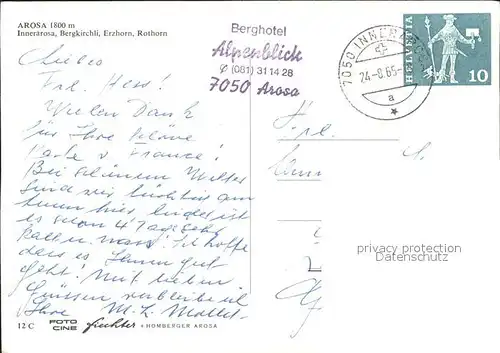 AROSA 1800 m
Innerarosa, Bergkirchli, Erzhorn, Rothorn
Berghotel
Alpenblick
✆ (081) 31 14 28
7050 Arosa
7050 INNERAROSA
24-8.65-
a
HELVETIA
10
Frl. Hess!
Vielen Dank
für Ihre schöne
Karte v. France!
Bei schönem Wetter
sind wir
hier, leider ist
es schon 4 Tage sehr
kalt u. nass. Ich hoffe
dass es Ihnen gut
geht! Mit lieben
Grüssen verbleibe ich
Ihre M. L.
Frl.
privacy protection
Datenschutz
12 C FOTO CINE Fuchter + HOMBERGER AROSA